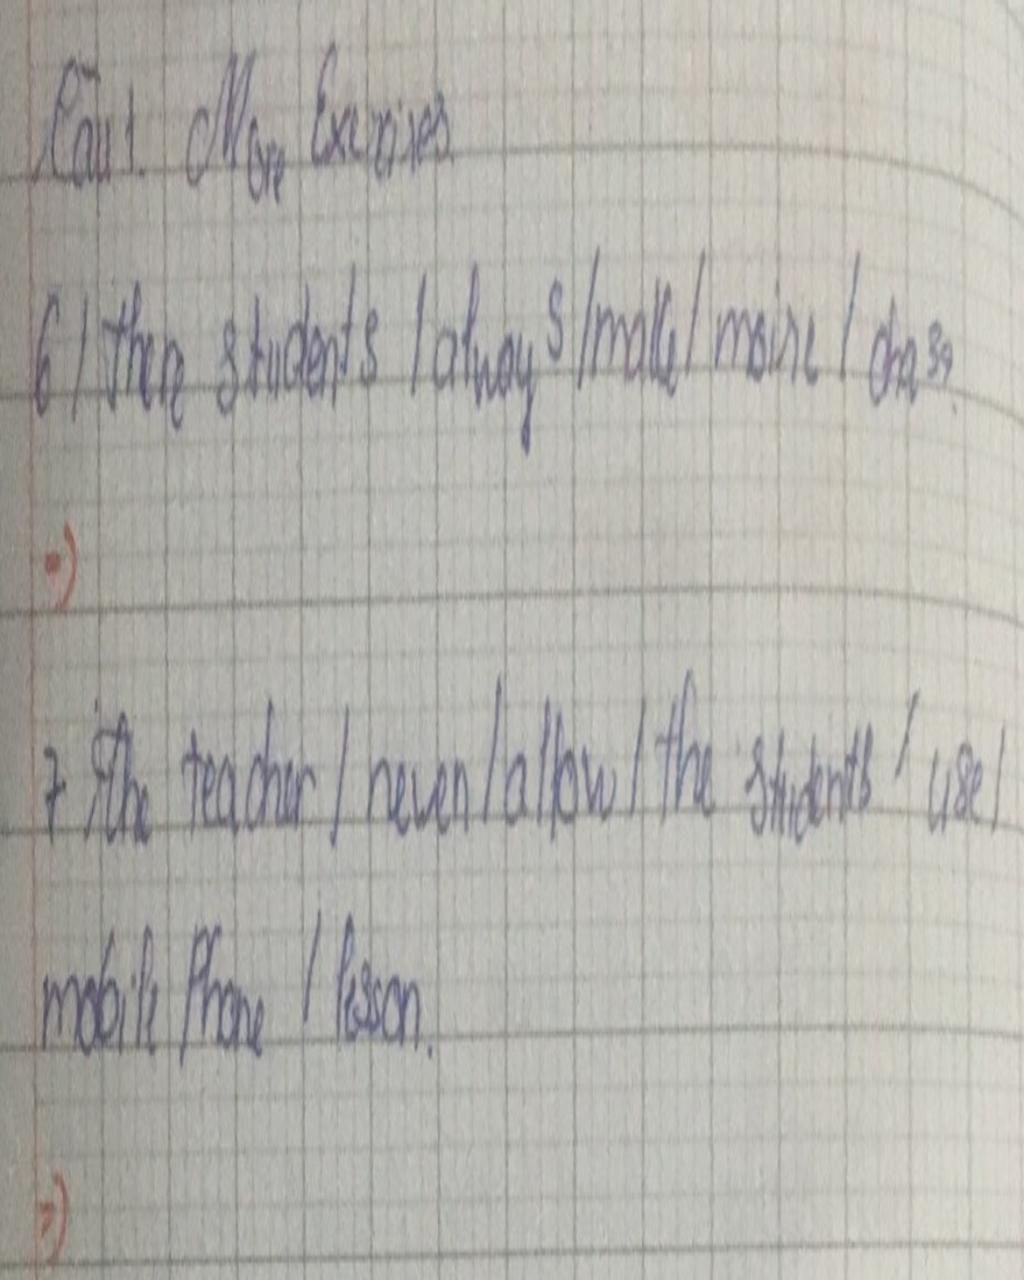 Câu 1. More Exercises.
6 / there students / always / make / noise / class.
=)
7 / the teacher / never / allow / the students / use /
mobile phone / lesson.
=)